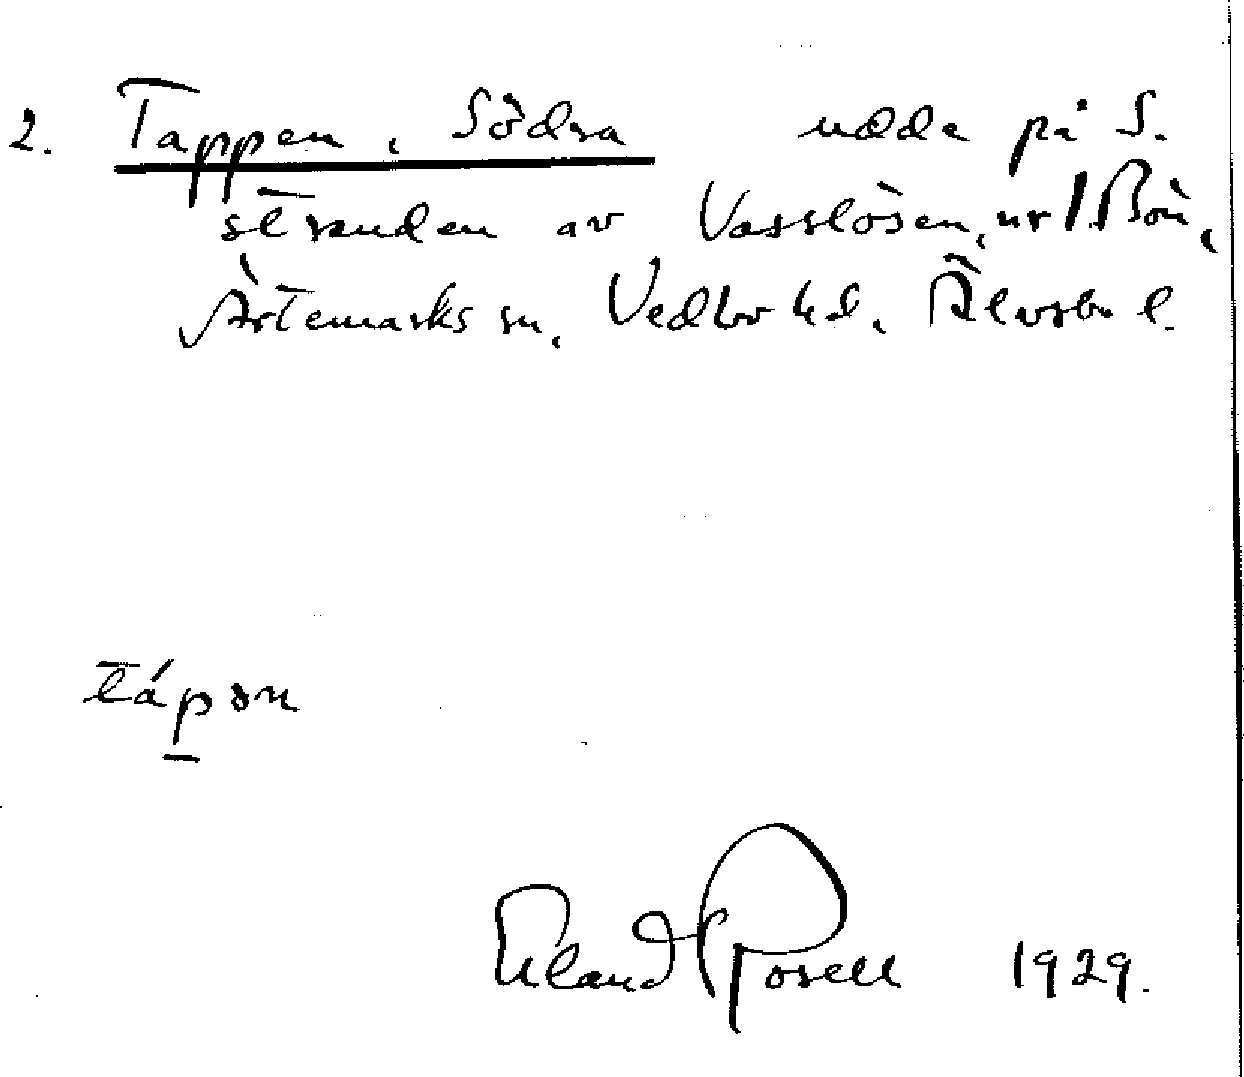 2. Tappen, Södra udde på S.
stranden av Vasslösen, ur 1. Bön,
Ärtemarks sn, Vedbo hd, Älvsb. l.
tápən
Erland Rosell 1929.